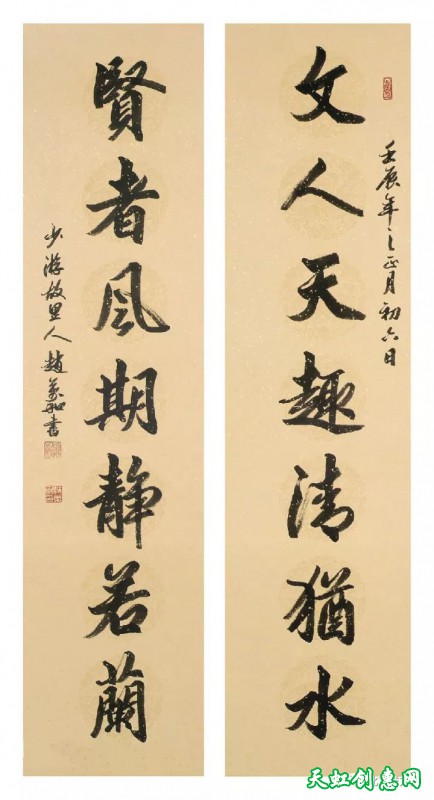 文人天趣清猶水
壬辰年之正月初六日
賢者風期静若蘭
少游故里人趙萬和書
天虹创惠网